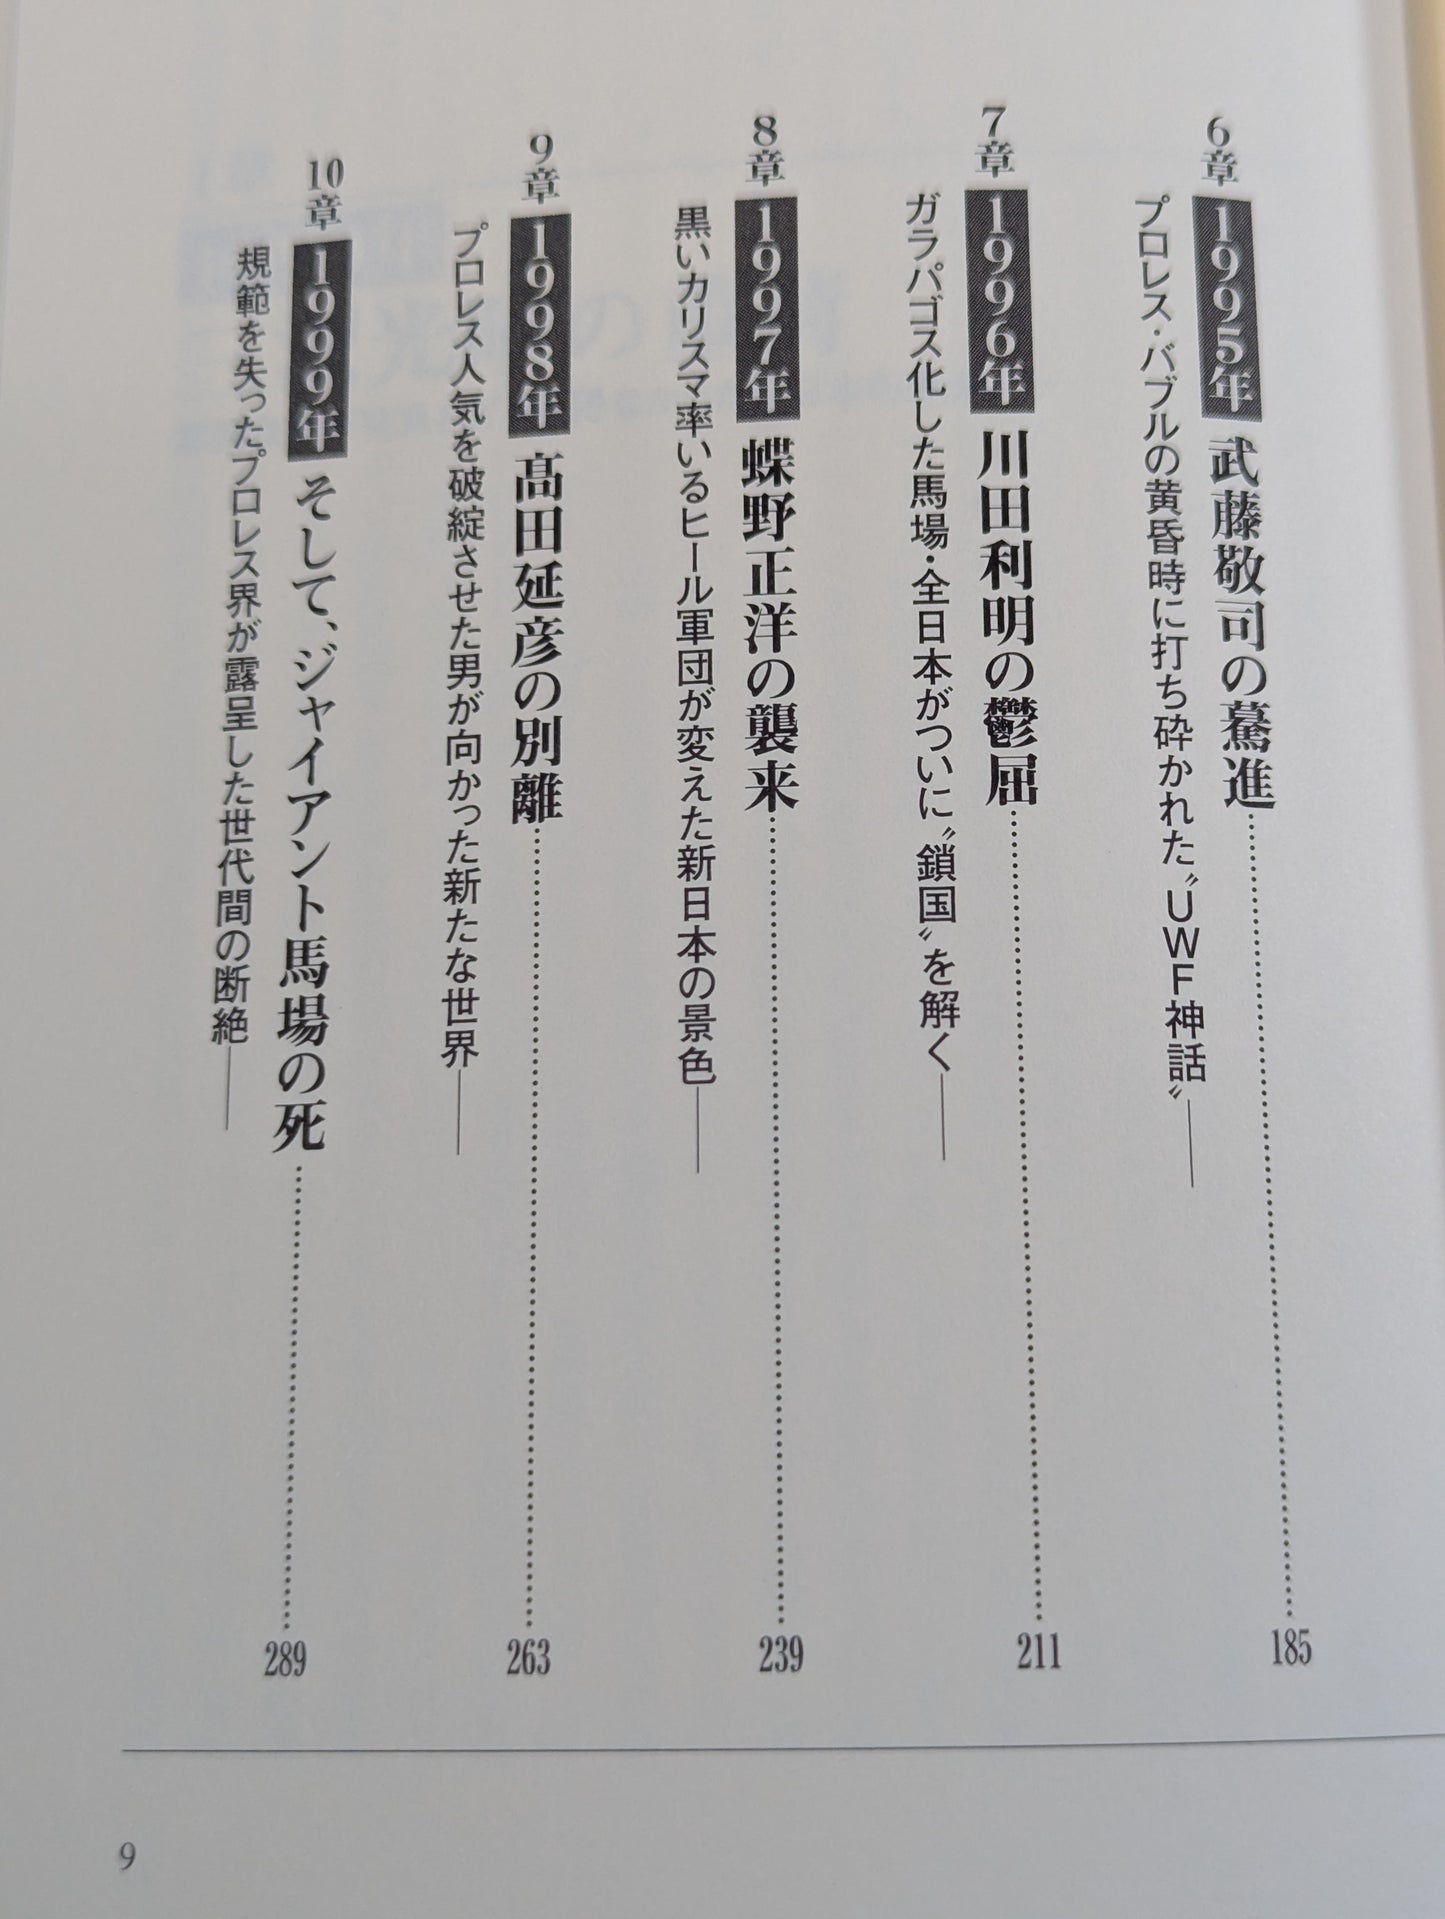 6章 1995年 武藤敬司の驀進……185
プロレス・バブルの黄昏時に打ち砕かれた〝UWF神話〟――
7章 1996年 川田利明の鬱屈……211
ガラパゴス化した馬場・全日本がついに〝鎖国〟を解く――
8章 1997年 蝶野正洋の襲来……239
黒いカリスマ率いるヒール軍団が変えた新日本の景色――
9章 1998年 髙田延彦の別離……263
プロレス人気を破綻させた男が向かった新たな世界――
10章 1999年 そして、ジャイアント馬場の死……289
規範を失ったプロレス界が露呈した世代間の断絶――
9